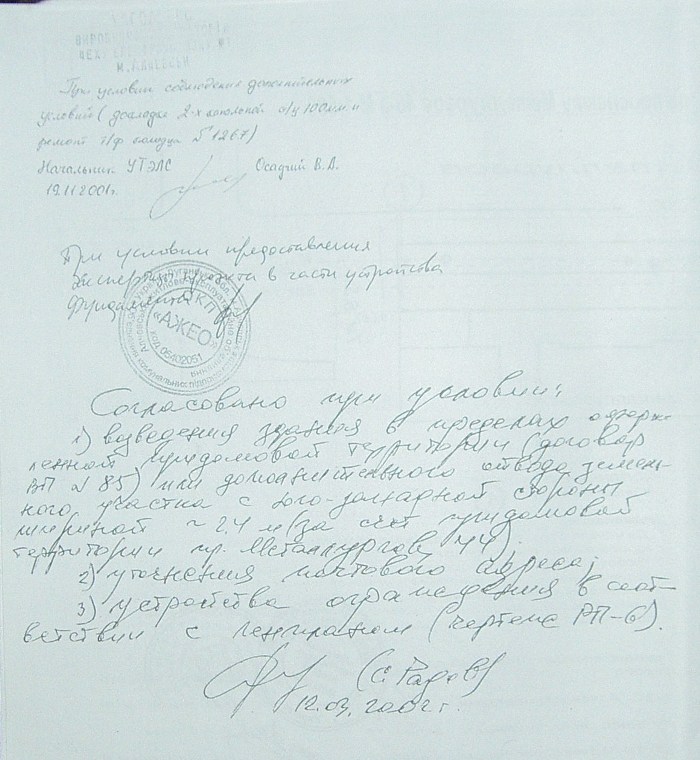 При условии соблюдения дополнительных
условий (докладка 2-х канальной а/ц 100мм и
ремонт т/ф колодца №1267)
Начальник УТЭЛС Осадчий В.А.
19.11.2001г.
При условии предоставления
экспертизы проекта в части устройства
фундамента
ОКП
«АЖЕО»
Код 05402051
Согласовано при условии:
1) возведения здания в пределах
ленной придомовой территории (договор
ВП № 85) или дополнительного отвода земель-
ного участка с юго-западной стороны
шириной ~ 2.4 м (за счет придомовой
территории пр. Металлургов, 44).
2) уточнения почтового адреса;
3) устройства ограждения в соот-
ветствии с генпланом (чертеж РП-6).
12.03.2002г.